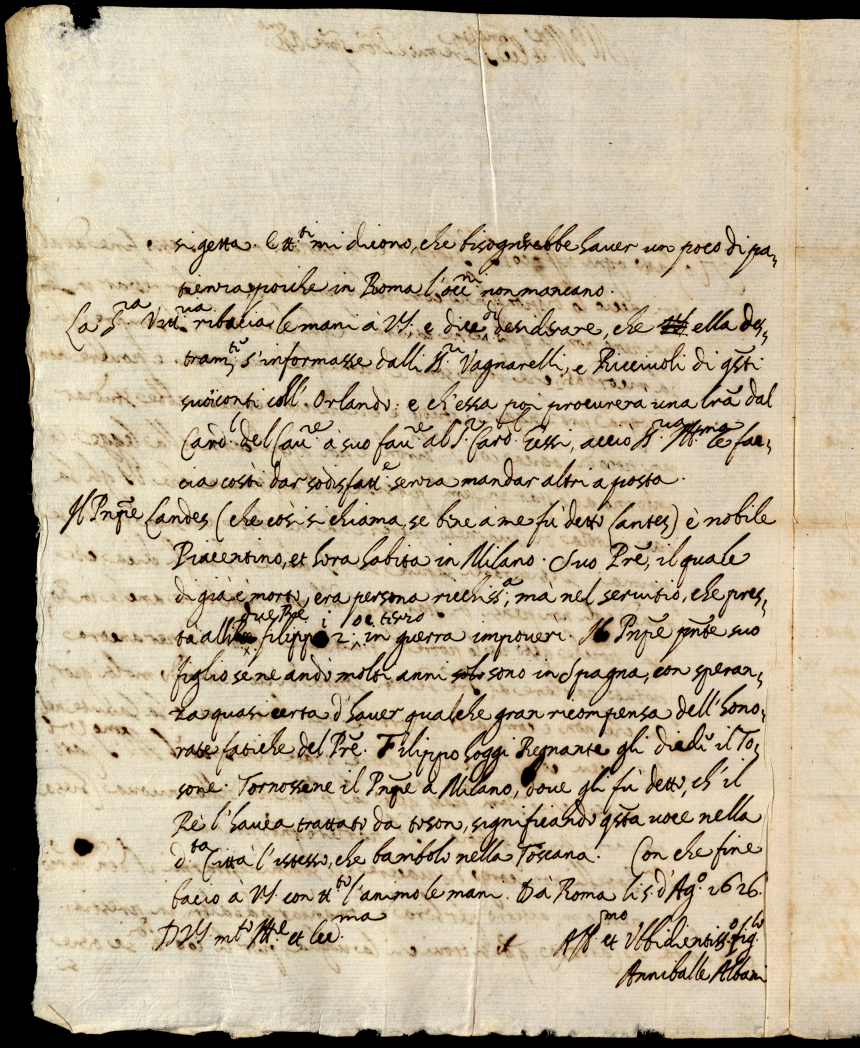 si getta. Et tt.ti mi dicono, che bisognerebbe haver un poco di pa-
tienza, poiche in Roma l'occ.ni non mancano.
La S.ra ribacia le mani à VS; e dice di desiderare, che ella des-
tram.te s'informasse dalli SS.ri Vagnarelli, e Ricciuoli di q̃sti
suoi conti coll. Orlando. e ch'essa poi procurerà una lrã dal
Card.l del à suo fau.re al S.r Card.l Gessi, acciò S.ria Ill.ma le fac-
cia costi dar sodisfatt.e senza mandar altri a posta.
Il Pnp̃e Landes (che cosi si chiama, se bene a me fù detto Lantes) è nobile
Piacentino, et hora habita in Milano. Suo Prẽ, il quale
di già è morto, era persona ricchiss.a, mà nel servitio, che pres-
tò alli due Rè filippi 2. et terzo in guerra impoverì. Il Pnp̃e pñte suo
figlio se ne andò molti anni sono in Spagna, con speran-
za quasi certa d'haver qualche gran ricompensa dell'hono-
rate fatiche del Prẽ. Filippo hoggi Regnante gli diede il To-
sone. Tornossene il Pnp̃e à Milano, dove gli fù detto, ch'il
Rè l'havea trattato da toson, significando q̃sta voce nella
d.ta Città l'istesso, che bambolo nella Toscana. Con che fine
bacio à VS con tt.to l'animo le mani. Dà Roma li 5. d'Ag.o 1626.
D VS m.to Ill.e et Ecc.ma
Aff.mo et Ubbidientiss.o fig.lo
Anniballe Albani